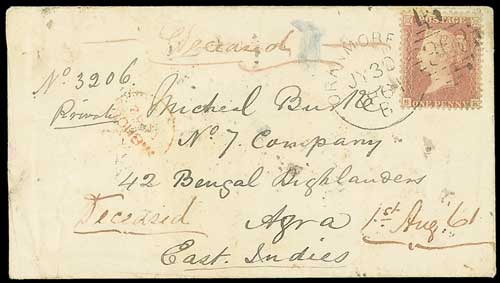 Deceased
ORANMORE
JY 30
POSTAGE
ONE PENNY
No. 3206
Private Micheal Burke
No 7 Company
42 Bengal Highlanders
Deceased Agra 1st Aug 61
East Indies